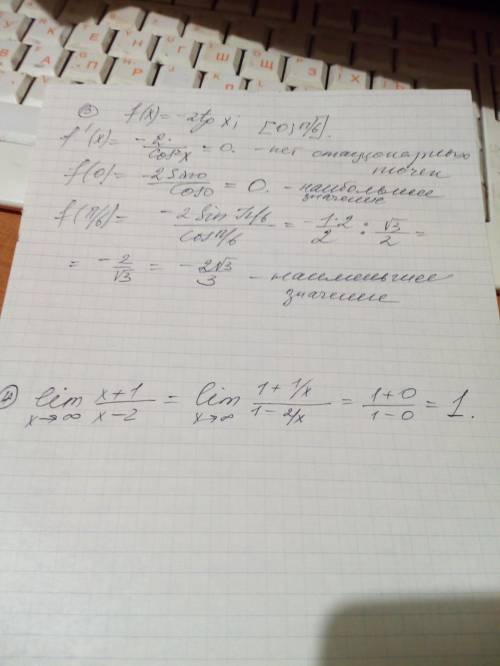 ③ f(x) = -2tg x; [0; π/6].
f'(x) = -2/cos²x = 0. - нет стационарных
точек
f(0) = -2 sin 0/cos 0 = 0. - наибольшее
значение
f(π/6) = -2 sin π/6/cos π/6 = -1·2/2 : √3/2 =
= -2/√3 = -2√3/3 - наименьшее
значение
lim x→∞ x+1/x-2 = lim x→∞ 1+1/x/1-2/x = 1+0/1-0 = 1.